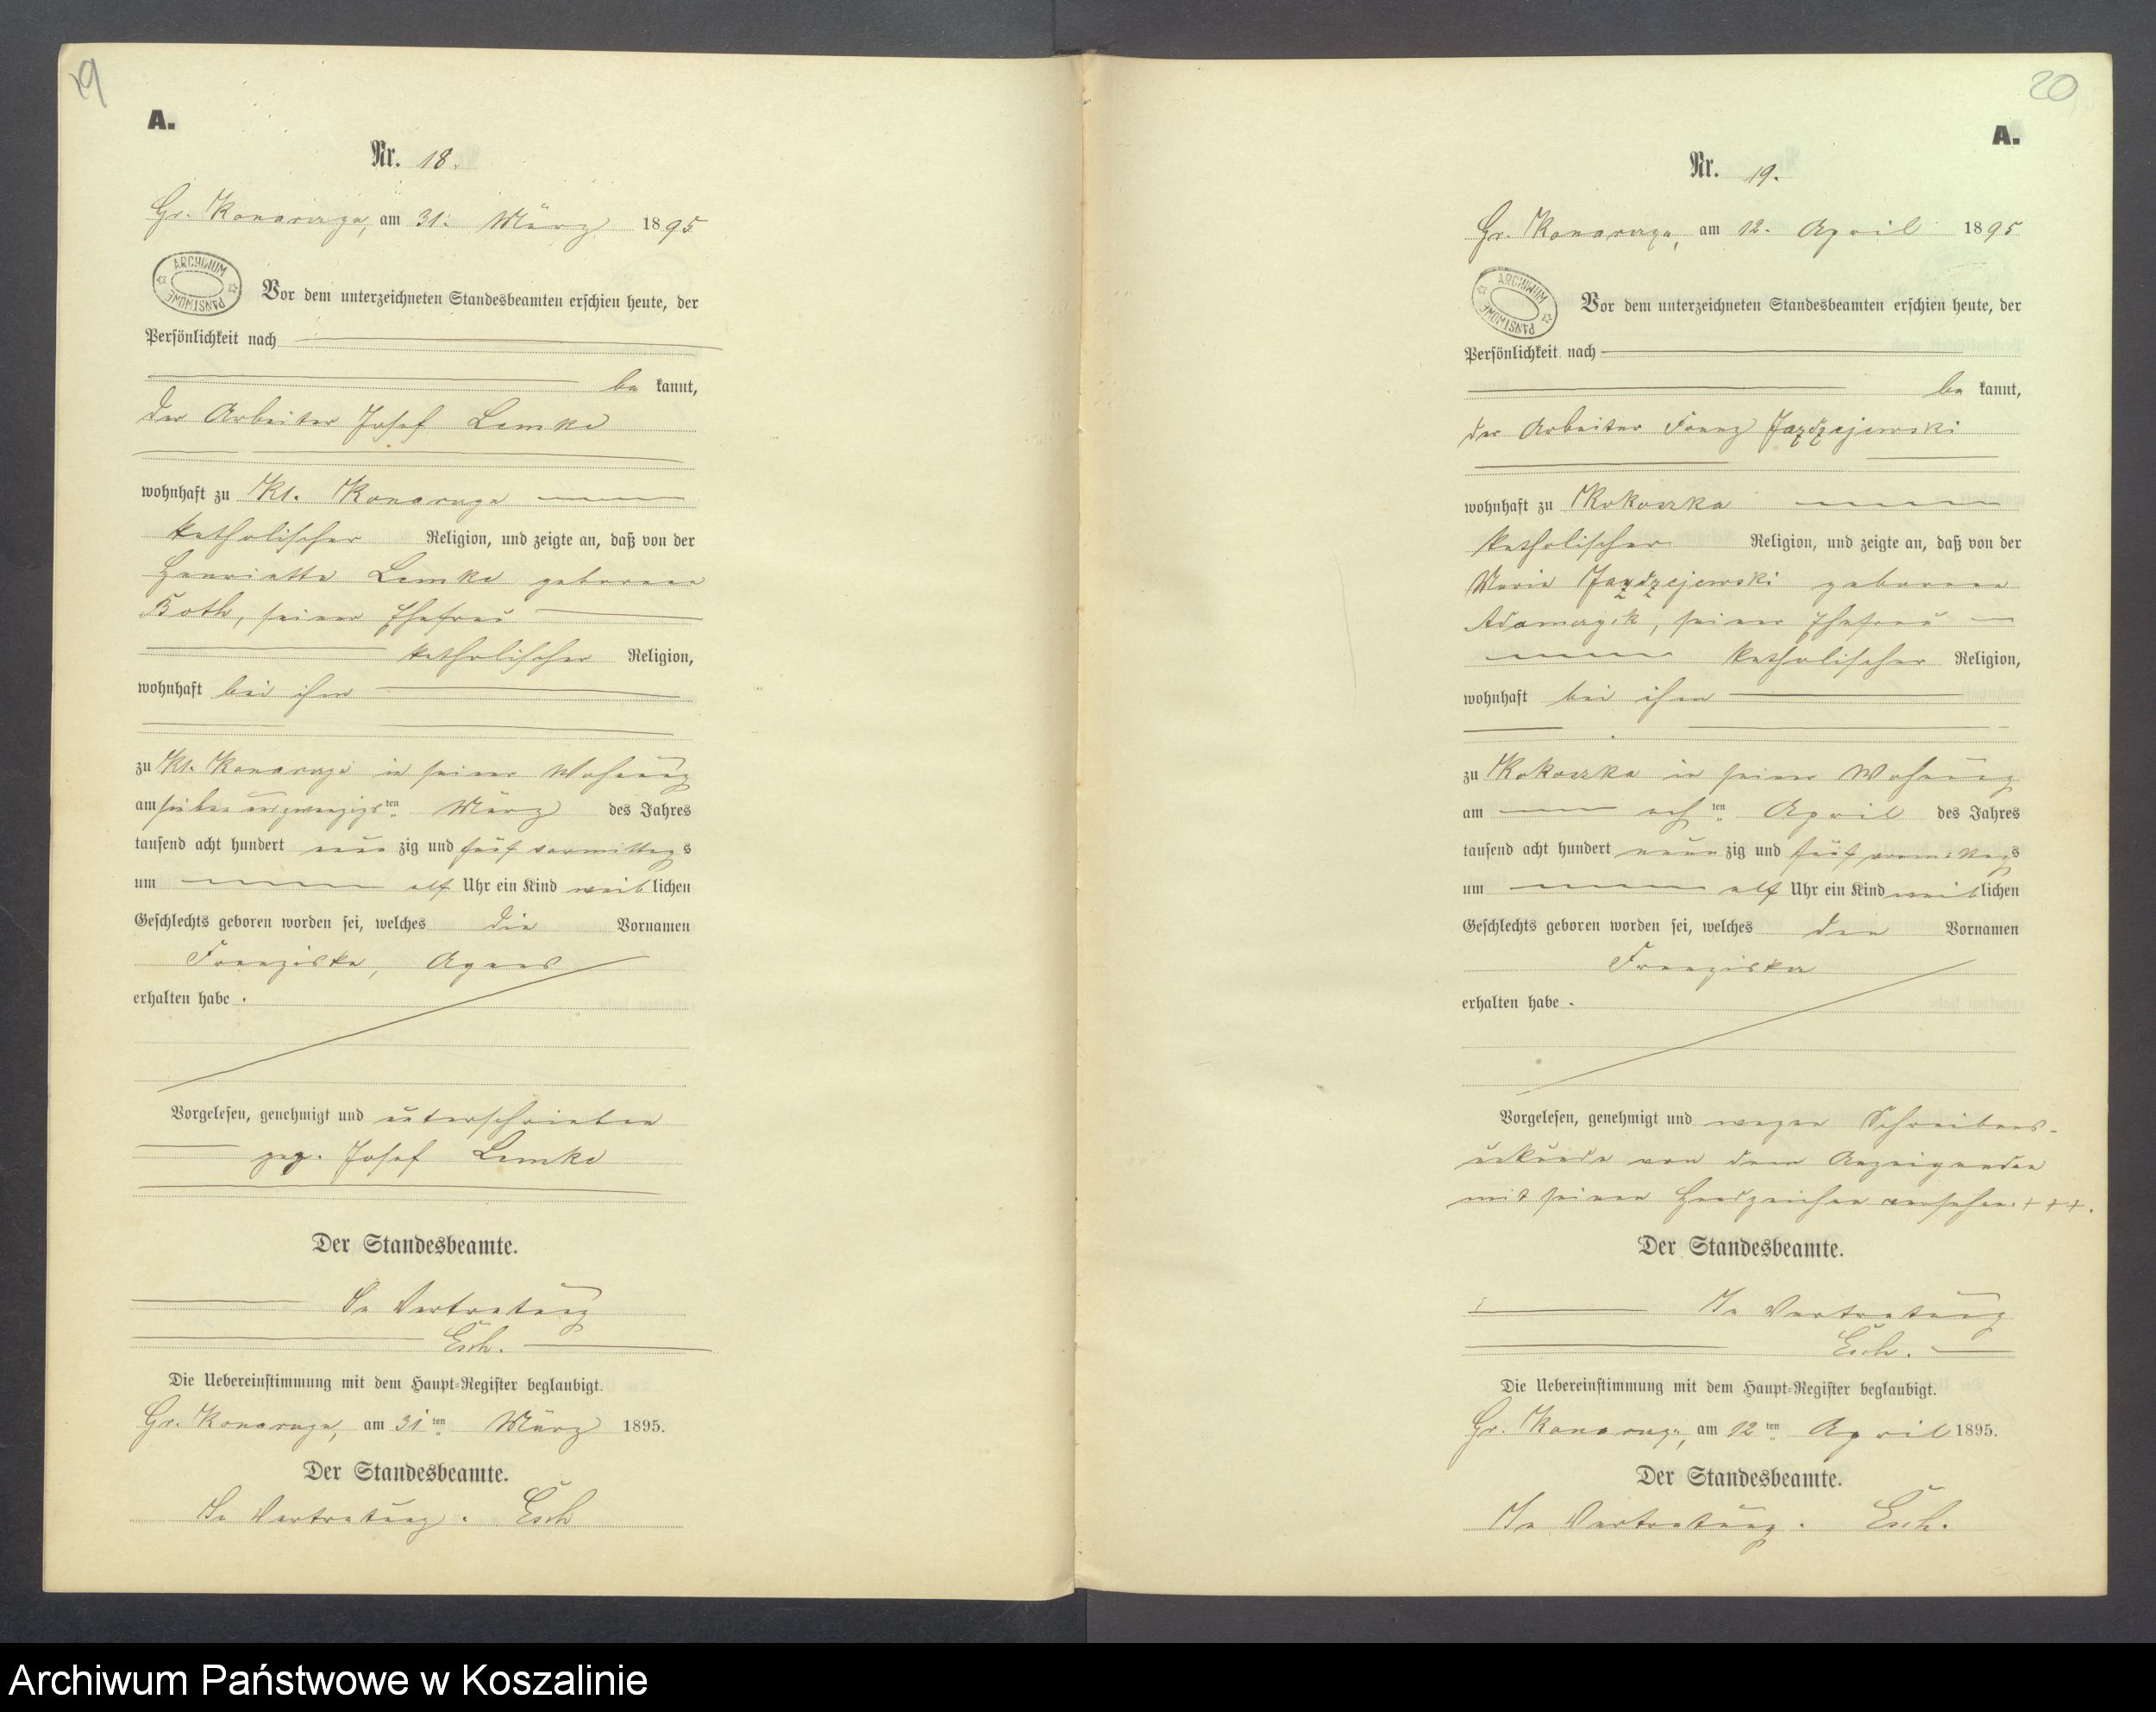 19
A.
Nr. 18.
Gr. Konarczyn, am 31. März 1895
ARCHIWUM PAŃSTWOWE
Vor dem unterzeichneten Standesbeamten erschien heute, der
Persönlichkeit nach
be kannt,
der Arbeiter Josef Lemke
wohnhaft zu Kl. Konarczyn
katholischer Religion, und zeigte an, daß von der
Henriette Lemke geborene
Both, seiner Ehefrau
katholischer Religion,
wohnhaft bei ihm
zu Kl. Konarczyn in seiner Wohnung
am sieben und zwanzigsten März des Jahres
tausend acht hundert neun zig und fünf vormittags
um elf Uhr ein Kind weiblichen
Geschlechts geboren worden sei, welches die Vornamen
Franziska, Agnes
erhalten habe.
Vorgelesen, genehmigt und unterschrieben
gez. Josef Lemke
Der Standesbeamte.
In Vertretung
Esch.
Die Uebereinstimmung mit dem Haupt-Register beglaubigt.
Gr. Konarczyn, am 31ten März 1895.
Der Standesbeamte.
In Vertretung. Esch
20
A.
Nr. 19.
Gr. Konarczyn, am 12. April 1895
ARCHIWUM PAŃSTWOWE
Vor dem unterzeichneten Standesbeamten erschien heute, der
Persönlichkeit nach
be kannt,
der Arbeiter Franz Jazdzejewski
wohnhaft zu Kokoszka
katholischer Religion, und zeigte an, daß von der
Maria Jazdzejewski geborene
Adamczyk, seiner Ehefrau
katholischer Religion,
wohnhaft bei ihm
zu Kokoszka in seiner Wohnung
am achten April des Jahres
tausend acht hundert neun zig und fünf vormittags
um elf Uhr ein Kind weiblichen
Geschlechts geboren worden sei, welches den Vornamen
Franziska
erhalten habe.
Vorgelesen, genehmigt und wegen Schreibens-
unkunde von dem Anzeigenden
mit seinen Handzeichen versehen. +++.
Der Standesbeamte.
In Vertretung
Esch.
Die Uebereinstimmung mit dem Haupt-Register beglaubigt.
Gr. Konarczyn, am 12ten April 1895.
Der Standesbeamte.
In Vertretung. Esch.
Archiwum Państwowe w Koszalinie